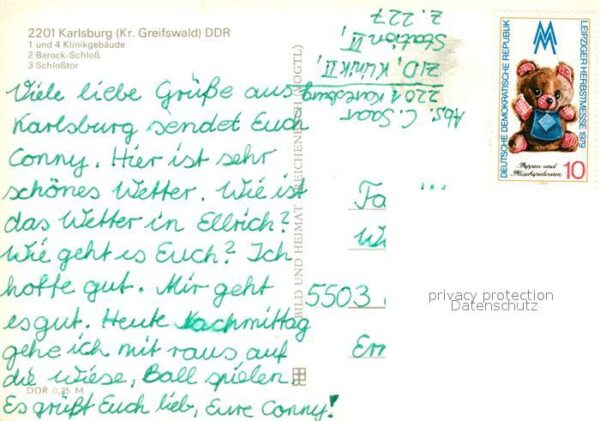 2201 Karlsburg (Kr. Greifswald) DDR
1 und 4 Klinikgebäude
2 Barock-Schloß
3 Schloßtor
Viele liebe Grüße aus
Karlsburg sendet Euch
Conny. Hier ist sehr
schönes Wetter. Wie ist
das Wetter in Ellrich?
Wie geht es Euch? Ich
hoffe gut. Mir geht
es gut. Heute Nachmittag
gehe ich mit raus auf
die Wiese, Ball spielen.
Es grüßt Euch lieb, Eure Conny!
DDR 0,25 M
BILD UND HEIMAT REICHENBACH (VOGTL)
Abs. C. Saar
2201 Karlsburg
ZID, Klinik II,
Station II,
Z. 227
Fa
5503
DEUTSCHE DEMOKRATISCHE REPUBLIK
LEIPZIGER HERBSTMESSE 1979
Puppen- und
Plüschspielwaren
10
privacy protection
Datenschutz